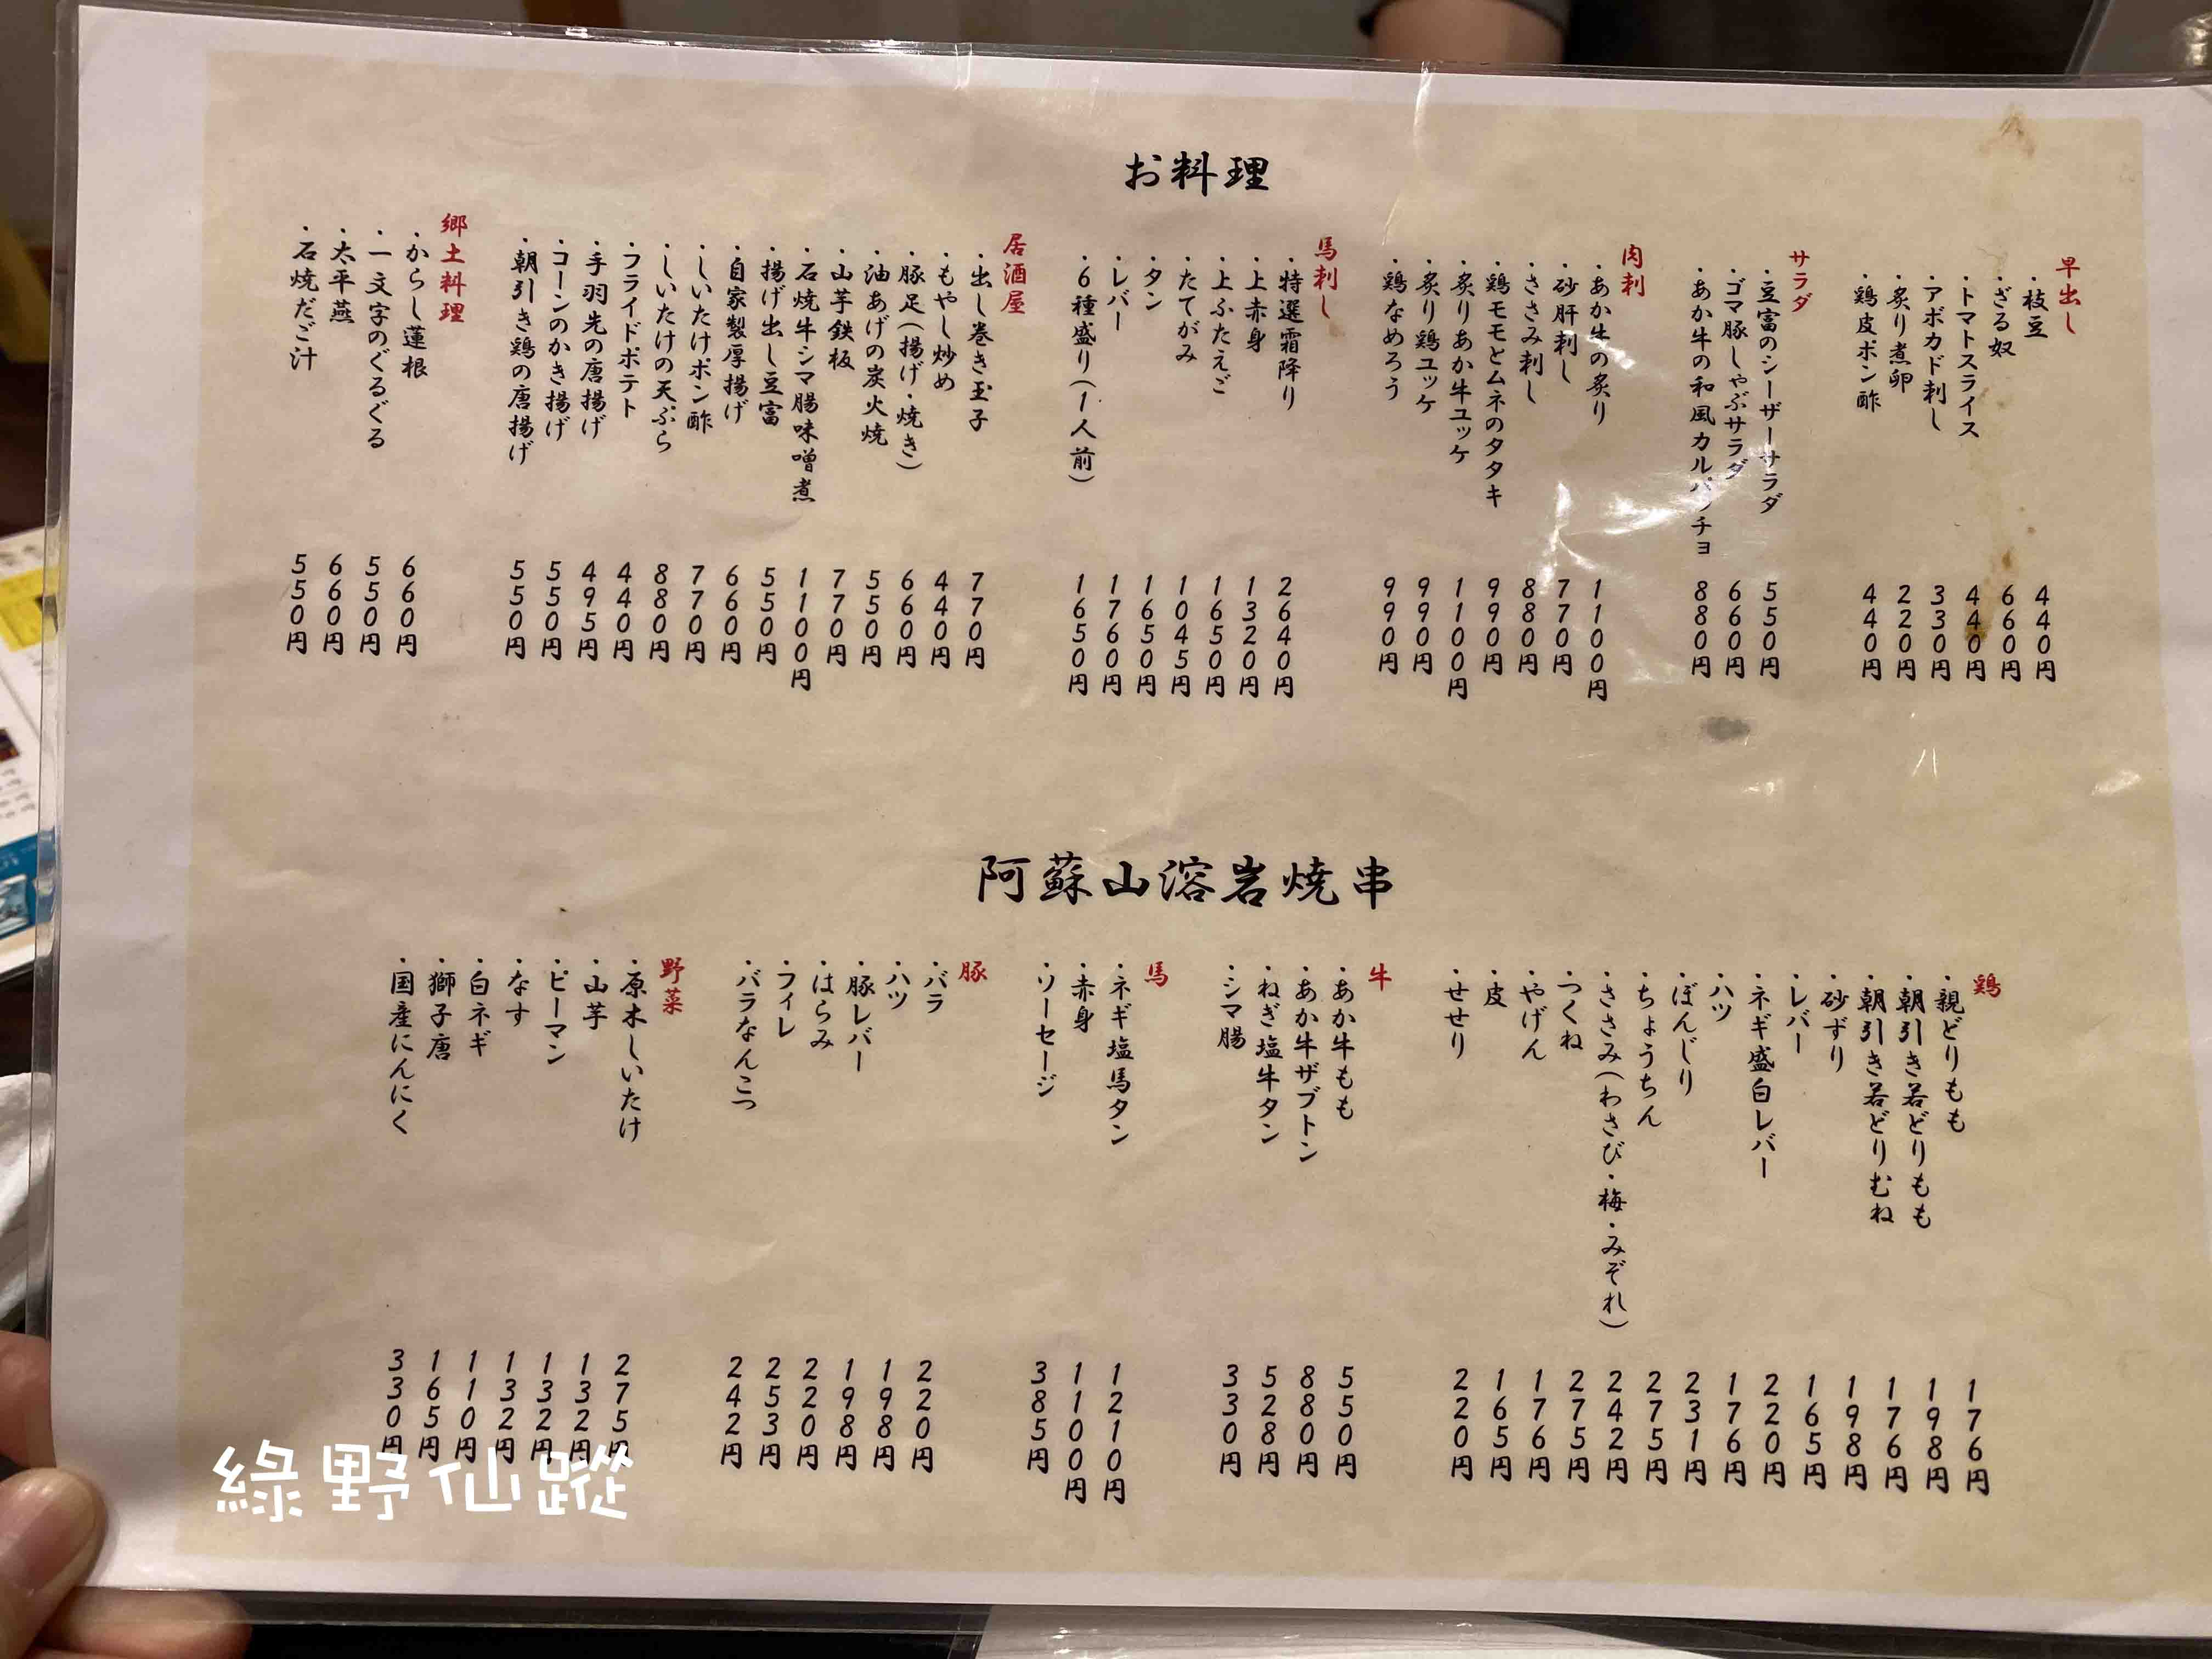 お料理
早出し
・枝豆 440円
・ざる奴 660円
・トマトスライス 440円
・アボカド刺し 330円
・炙り煮卵 220円
・鶏皮ポン酢 440円
サラダ
・豆富のシーザーサラダ 550円
・ゴマ豚しゃぶサラダ 660円
・あか牛の和風カルパッチョ 880円
肉刺
・あか牛の炙り 1100円
・砂肝刺し 770円
・ささみ刺し 880円
・鶏モモとムネのタタキ 990円
・炙りあか牛ユッケ 1100円
・炙り鶏ユッケ 990円
・鶏なめろう 990円
馬刺し
・特選霜降り 2640円
・上赤身 1320円
・上ふたえご 1650円
・たてがみ 1045円
・タン 1650円
・レバー 1760円
・6種盛り(1人前) 1650円
居酒屋
・出し巻き玉子 770円
・もやし炒め 440円
・豚足(揚げ・焼き) 660円
・油あげの炭火焼 550円
・山芋鉄板 770円
・石焼牛シマ腸味噌煮 1100円
・揚げ出し豆富 550円
・自家製厚揚げ 660円
・しいたけポン酢 770円
・しいたけの天ぷら 880円
・フライドポテト 440円
・手羽先の唐揚げ 495円
・コーンのかき揚げ 550円
・朝引き鶏の唐揚げ 550円
郷土料理
・からし蓮根 660円
・一文字のぐるぐる 550円
・太平燕 660円
・石焼だご汁 550円
阿蘇山溶岩焼串
鶏
・親どりもも 176円
・朝引き若どりもも 198円
・朝引き若どりむね 176円
・砂ずり 198円
・レバー 165円
・ネギ盛白レバー 220円
・ハツ 176円
・ぼんじり 231円
・ちょうちん 275円
・ささみ(わさび・梅・みぞれ) 242円
・つくね 275円
・やげん 176円
・皮 165円
・せせり 220円
牛
・あか牛もも 550円
・あか牛ザブトン 880円
・ねぎ塩牛タン 528円
・シマ腸 330円
馬
・ネギ塩馬タン 1210円
・赤身 1100円
・ソーセージ 385円
豚
・バラ 220円
・ハツ 198円
・豚レバー 198円
・はらみ 220円
・フィレ 253円
・バラなんこつ 242円
野菜
・原木しいたけ 275円
・山芋 132円
・ピーマン 132円
・なす 132円
・白ネギ 110円
・獅子唐 165円
・国産にんにく 330円
綠野仙蹤